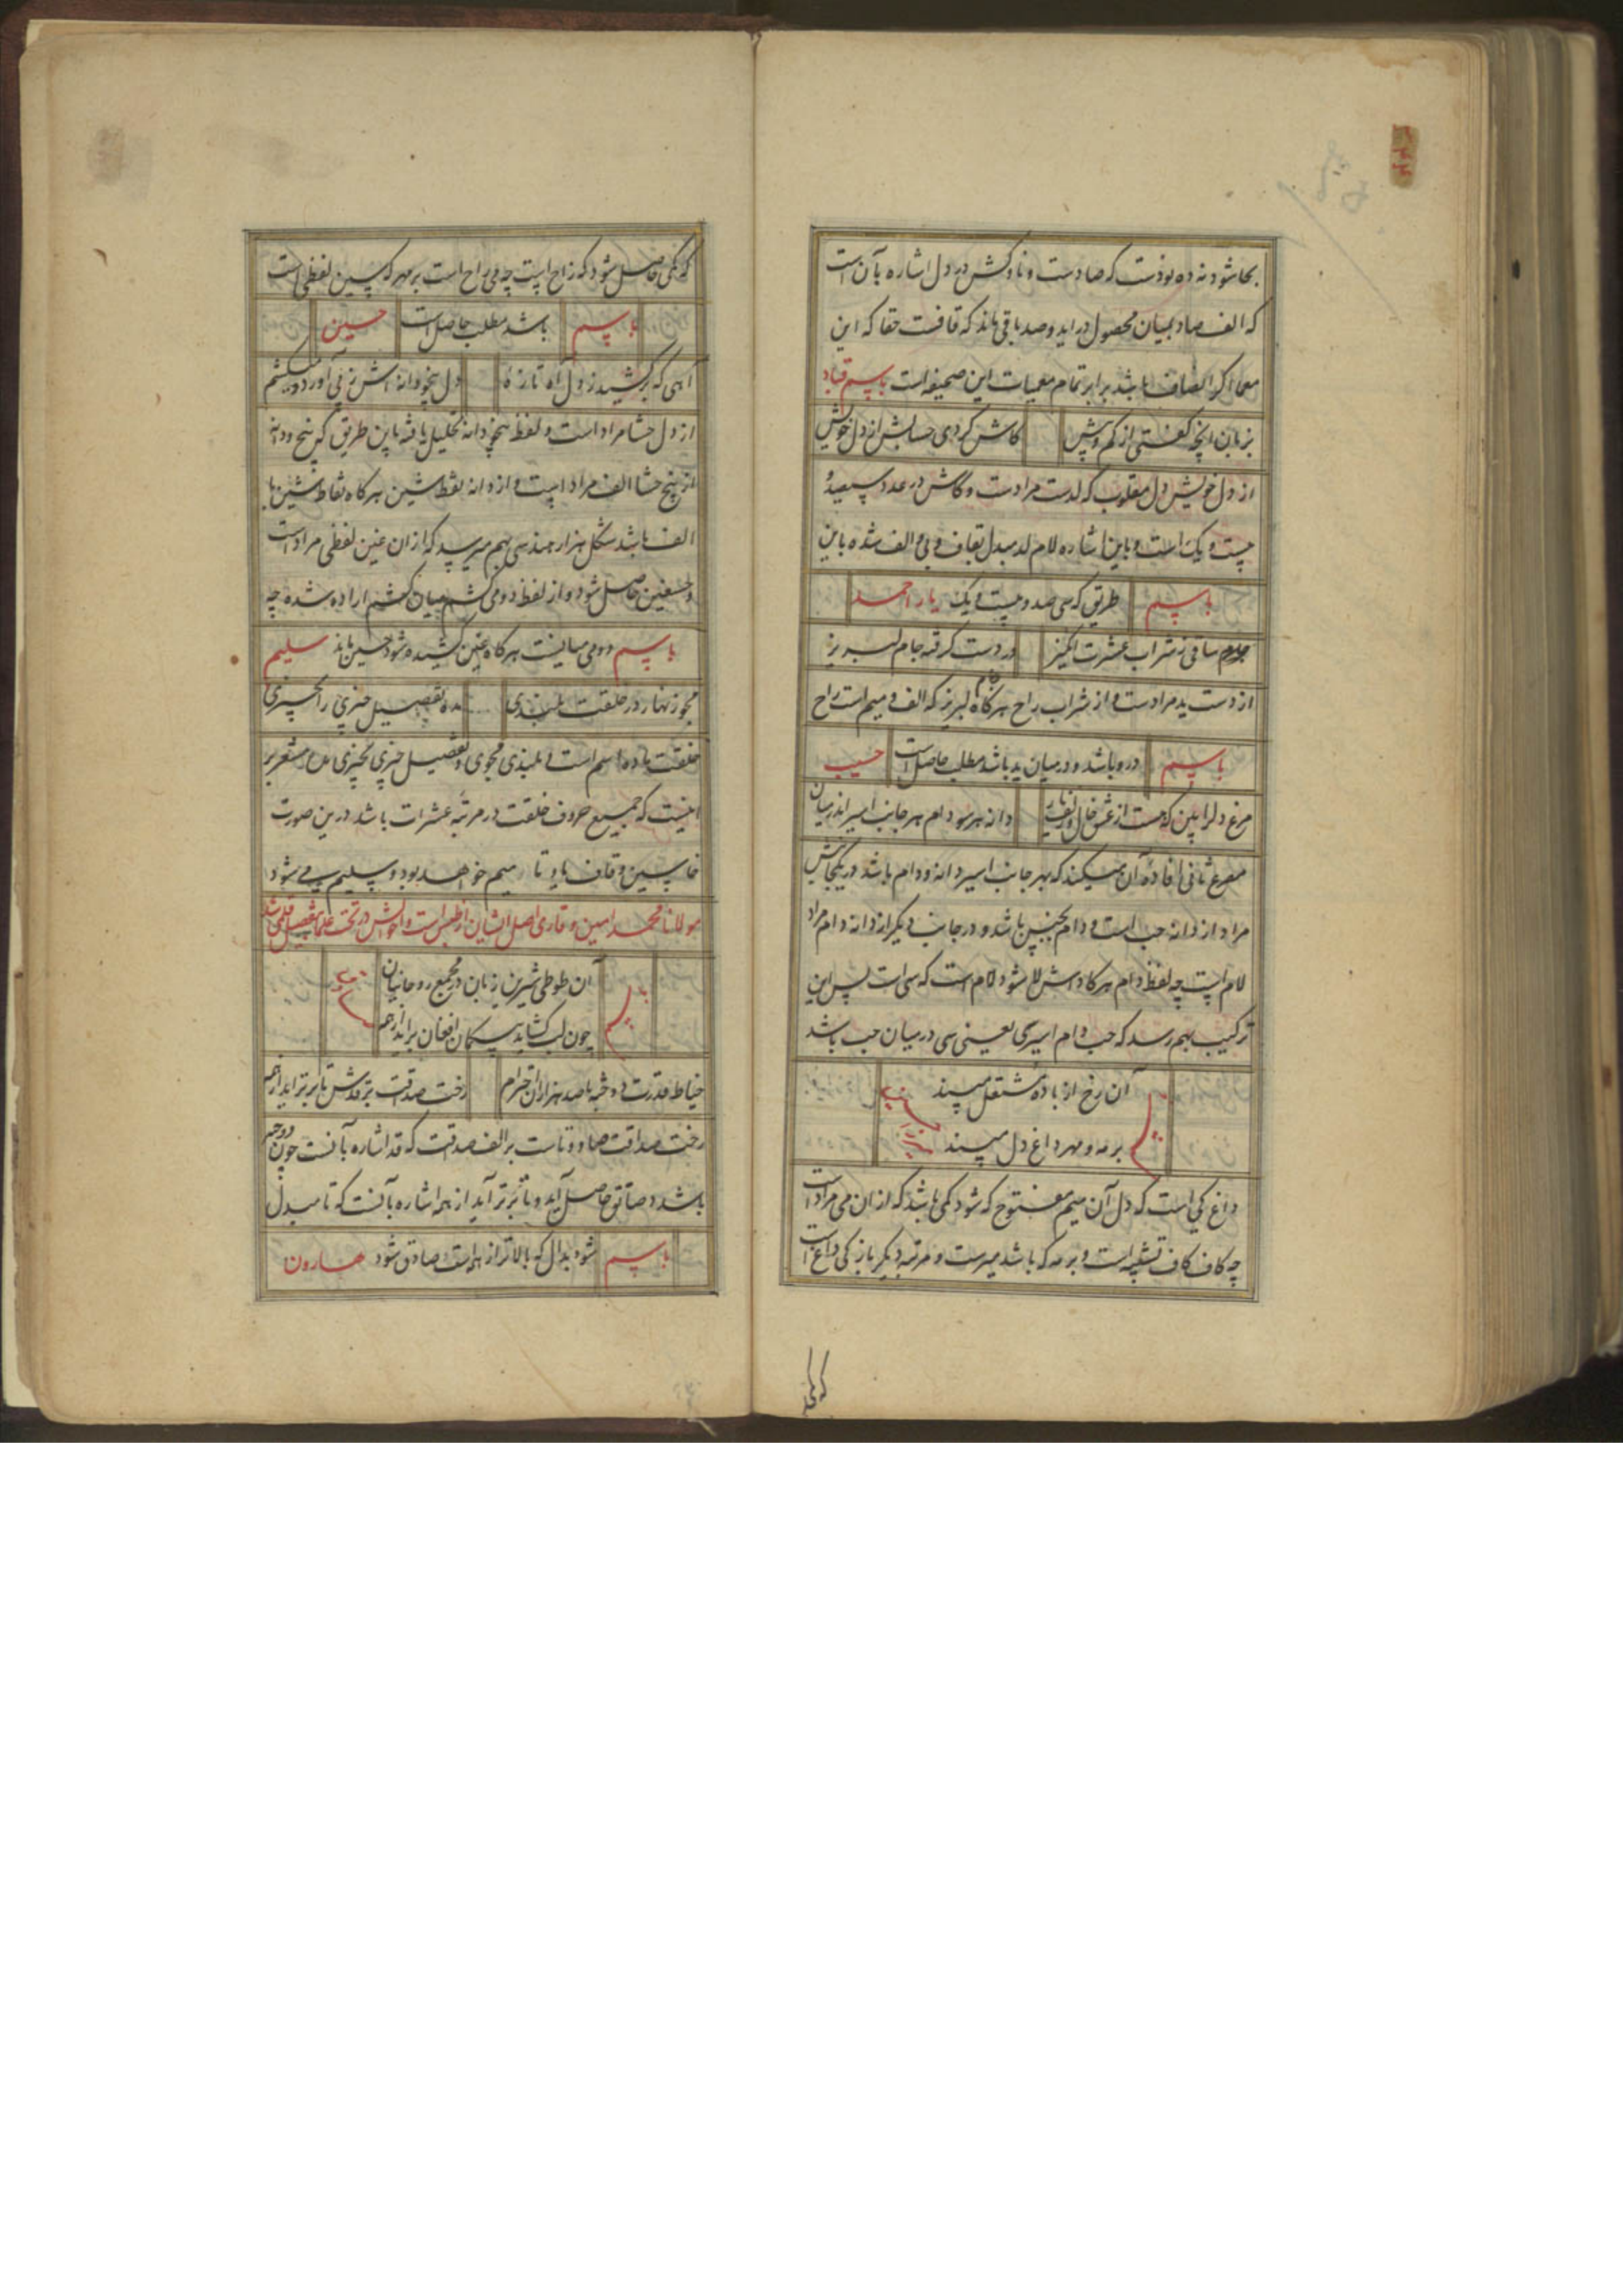 بجا شود نه ده نودست که صادست و ناوکش در دل اشاره بآن است
که الف صاد بمیان محصول در اید و صد باقی ماند که قافست حقا که این
معما اکر انصاف باشد برابر تمام معمیات این صحیفه است باسم قباد
بزبان انچه کفتی از کم و بیش کاش کردی حسابش از دل خویش
از دل خویش دل مقلوب که لدست مرادست و کاش در عدد سیصد و
بیست و یک است و باین اشاره لام لد مبدل بقاف و بی و الف شده باین
باسم طریق که سی صد و بیست و یک یار احمد
ساقی ز شراب عشرت انکیز در دست کرفته جام لبریز
از دست ید مرادست و از شراب راح هرکاه جام لبریز که الف و میم است راح
باسم درو باشد و در میان ید باشد مطلب حاصل است حسیب
مرغ دلرا بین که هست از عشق خال و زلف یار دانه هر سو دام هر جانب اسیر اندر میان
مصرع ثانی افاده آن میکند که بهر جانب اسیر دانه و دام باشد در یکجانبش
مراد از دانه حب است و دام بجنبین باشد و در جانب دیکر از دانه دام مراد
لام است چه لفظ دام هرکاه دانش لا شود لام است که سی است پس این
ترکیب بهم رسد که حب دام اسیری یعنی سی در میان حب باشد
باسم آن رخ از باده مشتعل میبند
بر مه و مهر داغ دل میبند
داغ کی است که دل آن میم مفتوح که شود کمی باشد که از ان می مراد است
چه کاف کاف تشبیه است و بر مه که باشد میرست و مرتبه دیکر باز کی داغ است
که کمی
که کمی حاصل شود که راح است چه می راح است بر مهر که سین لفظی است
باسم باشد مطلب حاصل است حسین
آهی که برکشید ز دل آه تازه دل پنج و دانه اش بزنی آورد دو میکشم
از دل حشا مراد است و لفظ پنجودانه تحلیل یافته باین طریق که پنج و دانه
از پنج حشا الف مراد است و از دانه نقطه شین هرکاه نقاط شین با
الف باشد شکل هزار هندسی بهم میرسد که از ان غین لفظی مراد است
و حسغین حاصل شود و از لفظ دو می کشم میان کشم اراده شده چه
باسم دو می میانست هرکاه غین کشیده شود حسین ماند سلیم
مجو زنهار در خلقت بلندی مده تفصیل چیزی را بچیزی
خلقت ماده اسم است و بلندی مجوی و تفصیل چیزی بچیزی مده مشعر بر
اینست که جمیع حروف خلقت در مرتبه عشرات باشد درین صورت
خا سین و قاف یا و تا میم خواهد بود و سلیم می شود
مولانا محمد امین وقاری اصل ایشان از طبس است و احوالش در تحت علما بتفصیل قلمی شد
باسم آن طوطی شیرین زبان در مجمع روحانیان
چون لب کشاید بیکمان افغان براید از همه
خیاط قدرت دوخته با صد هزاران احترام رخت صداقت بر قدش تا برتر اید از همه
رخت صداقت صاد و تاست بر الف صدقت که قد اشاره بآنست چون دوخته
باشد و صاتق حاصل آید و تا برتر آید از همه اشاره بآنست که تا مبدل
باسم شود بدال که بالاتر از همه است و صادق شود هارون